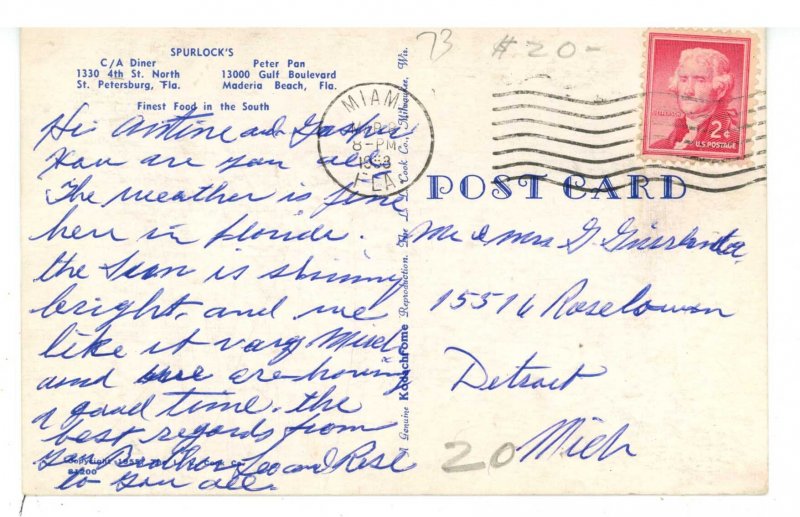 SPURLOCK'S
C/A Diner
1330 4th St. North
St. Petersburg, Fla.
Peter Pan
13000 Gulf Boulevard
Maderia Beach, Fla.
Finest Food in the South
Hi and
How are you all
The weather is fine
here in floride.
the Sun is shining
bright, and we
like it vary Much
and are haveing
a good time. the
best regards from
your Brother Leo and Rose
to you all.
81200
A Genuine Kodachrome Reproduction. The L. L. Cook Co., Milwaukee, Wis.
MIAMI
8-PM
FLA
73
$20-
2¢
U.S. POSTAGE
POST CARD
Mr & Mrs G.
15516 Roselawn
Detroit
20
Mich